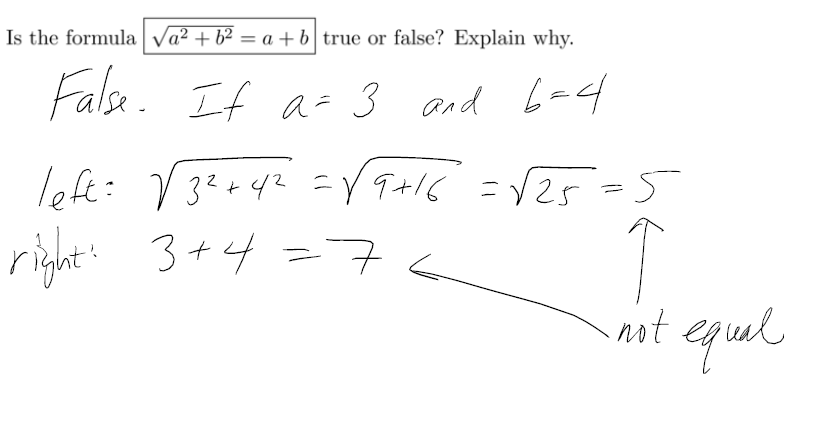 Is the formula √a² + b² = a + b true or false? Explain why.
False. If a = 3 and b = 4
left: √3² + 4² = √9+16 = √25 = 5
right: 3 + 4 = 7
not equal